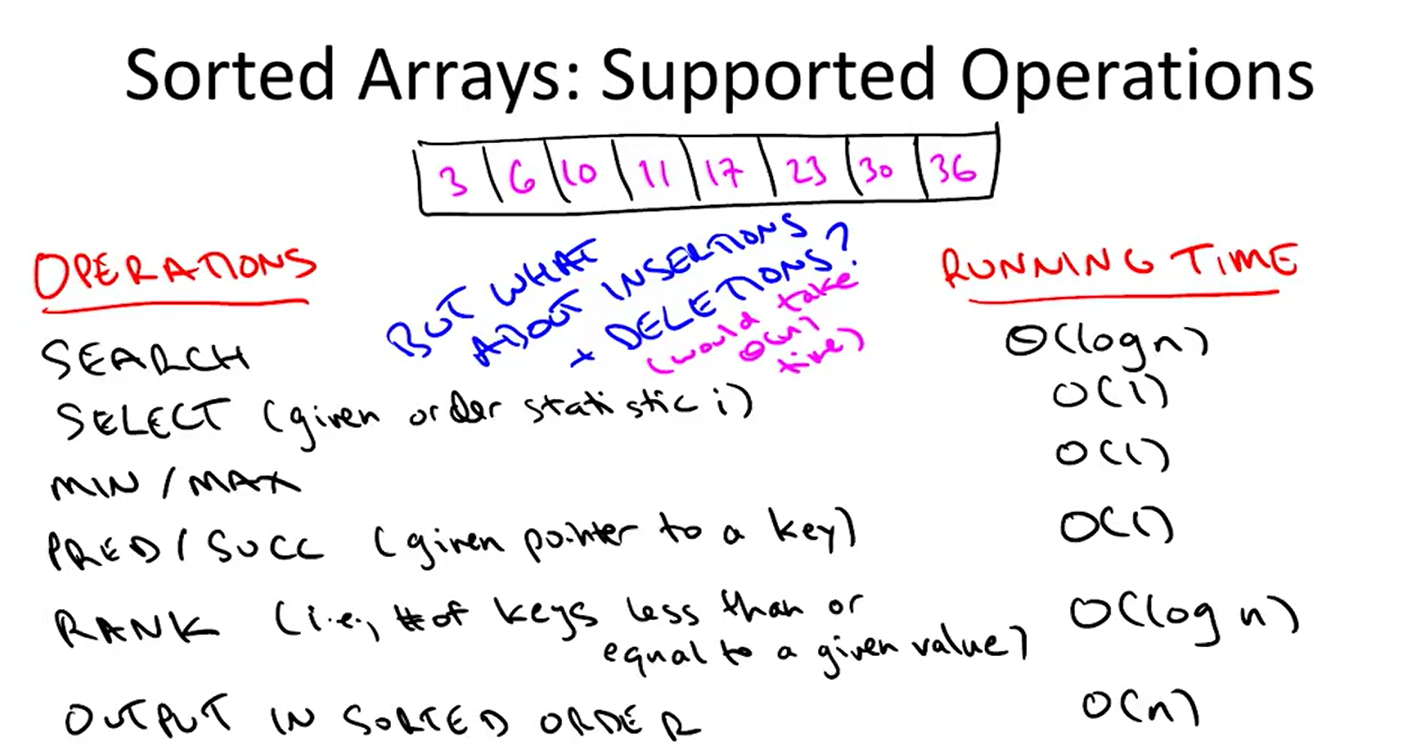 Sorted Arrays: Supported Operations
3 6 10 11 17 23 30 36
OPERATIONS
BUT WHAT
ABOUT INSERTIONS
+ DELETIONS?
(would take
O(n)
time)
RUNNING TIME
SEARCH
Θ(log n)
SELECT (given order statistic i)
O(1)
MIN/MAX
O(1)
PRED/SUCC (given pointer to a key)
O(1)
RANK (i.e., # of keys less than or
equal to a given value)
O(log n)
OUTPUT IN SORTED ORDER
O(n)